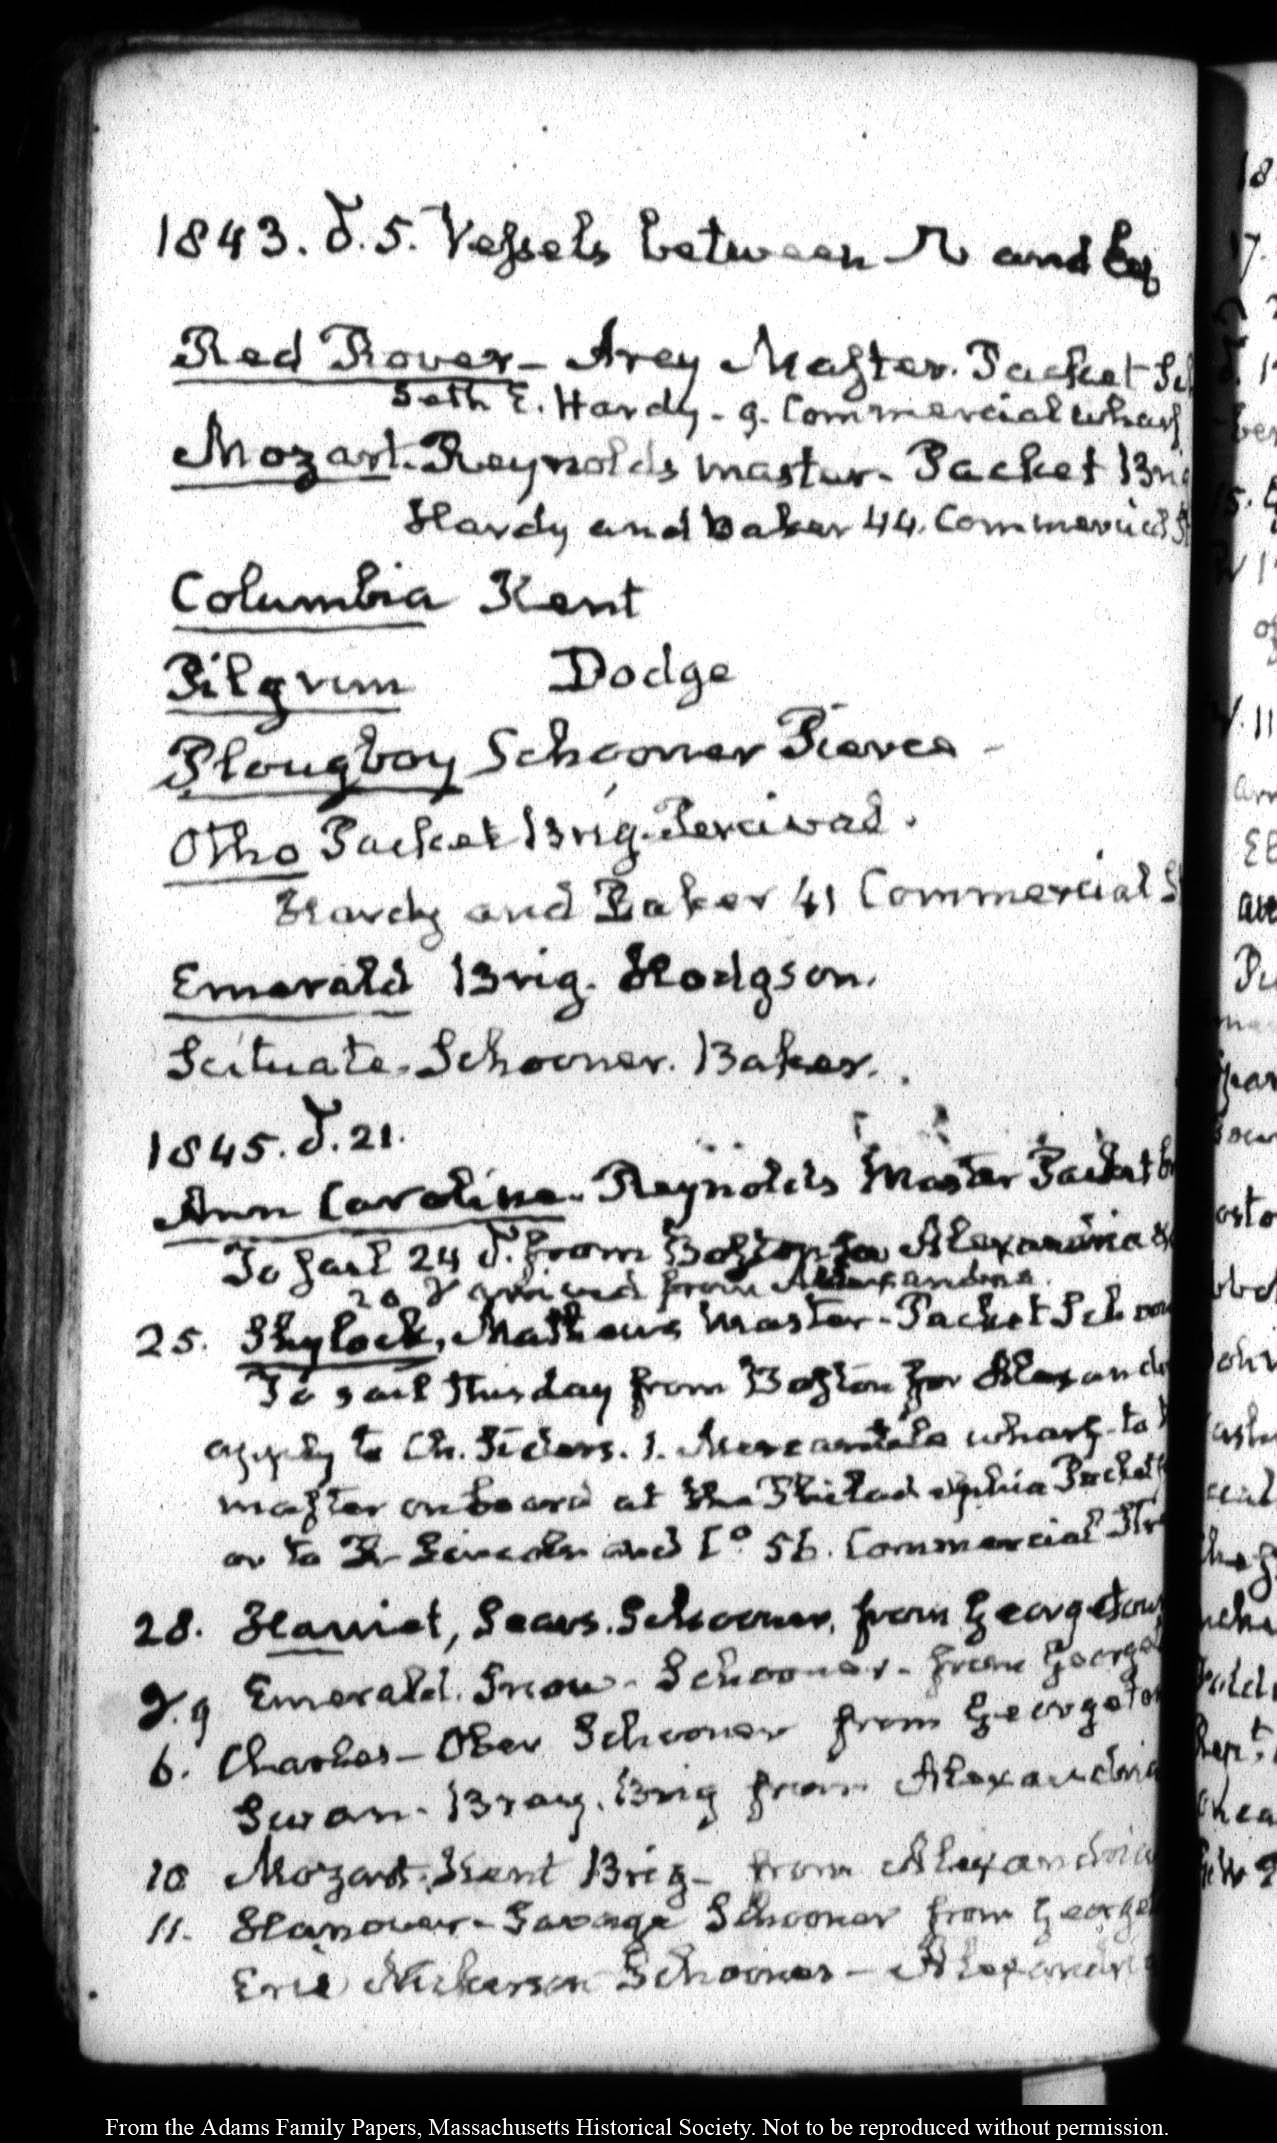 1843. 5. Vessels between and
Red Rover - Arey Master. Packet
Seth E. Hardy - 9. Commercial wharf
Mozart. Reynolds master - Packet Brig
Hardy and Baker 44. Commercial
Columbia Kent
Pilgrim Dodge
Plougboy Schooner Pierce -
Otho Packet Brig. Percival.
Hardy and Baker 41 Commercial
Emerald Brig. Hodgson.
Scituate. Schooner. Baker.
1845. 21.
Ann Caroline. Reynolds Master Packet
To sail 24 from Boston for Alexandria
arrived from Alexandria.
25. Shylock, Mathews Master - Packet
To sail this day from Boston for
apply to Ch. 1. Mercantile wharf - to
master on board at the Philadelphia Packet
or to and Co 56. Commercial
28. Harriet, Sears. Schooner, from Georgetown
9 Emerald. Snow - Schooner - from
6. Charles - Ober Schooner from
Swan - Bray. Brig from Alexandria
10 Mozart. Kent Brig - from Alexandria
11. Hanover - Savage Schooner from
Erie Nickerson Schooner - Alexandria
From the Adams Family Papers, Massachusetts Historical Society. Not to be reproduced without permission.